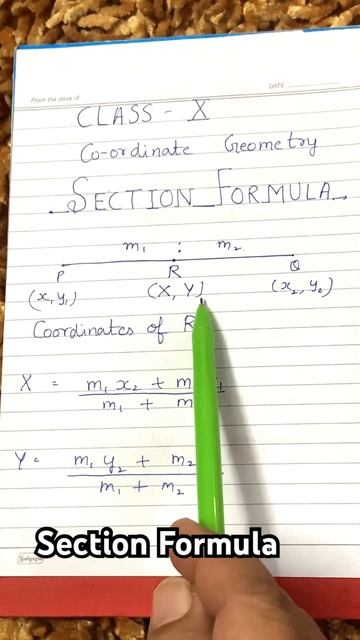 From the desk of
DATE
CLASS - X
Co-ordinate Geometry
SECTION FORMULA
m₁ : m₂
P R Q
(x, y₁) (X, Y) (x₂, y₂)
Coordinates of R
X = m₁ x₂ + m
m₁ + m
Y = m₁ y₂ + m₂
m₁ + m₂
Section Formula